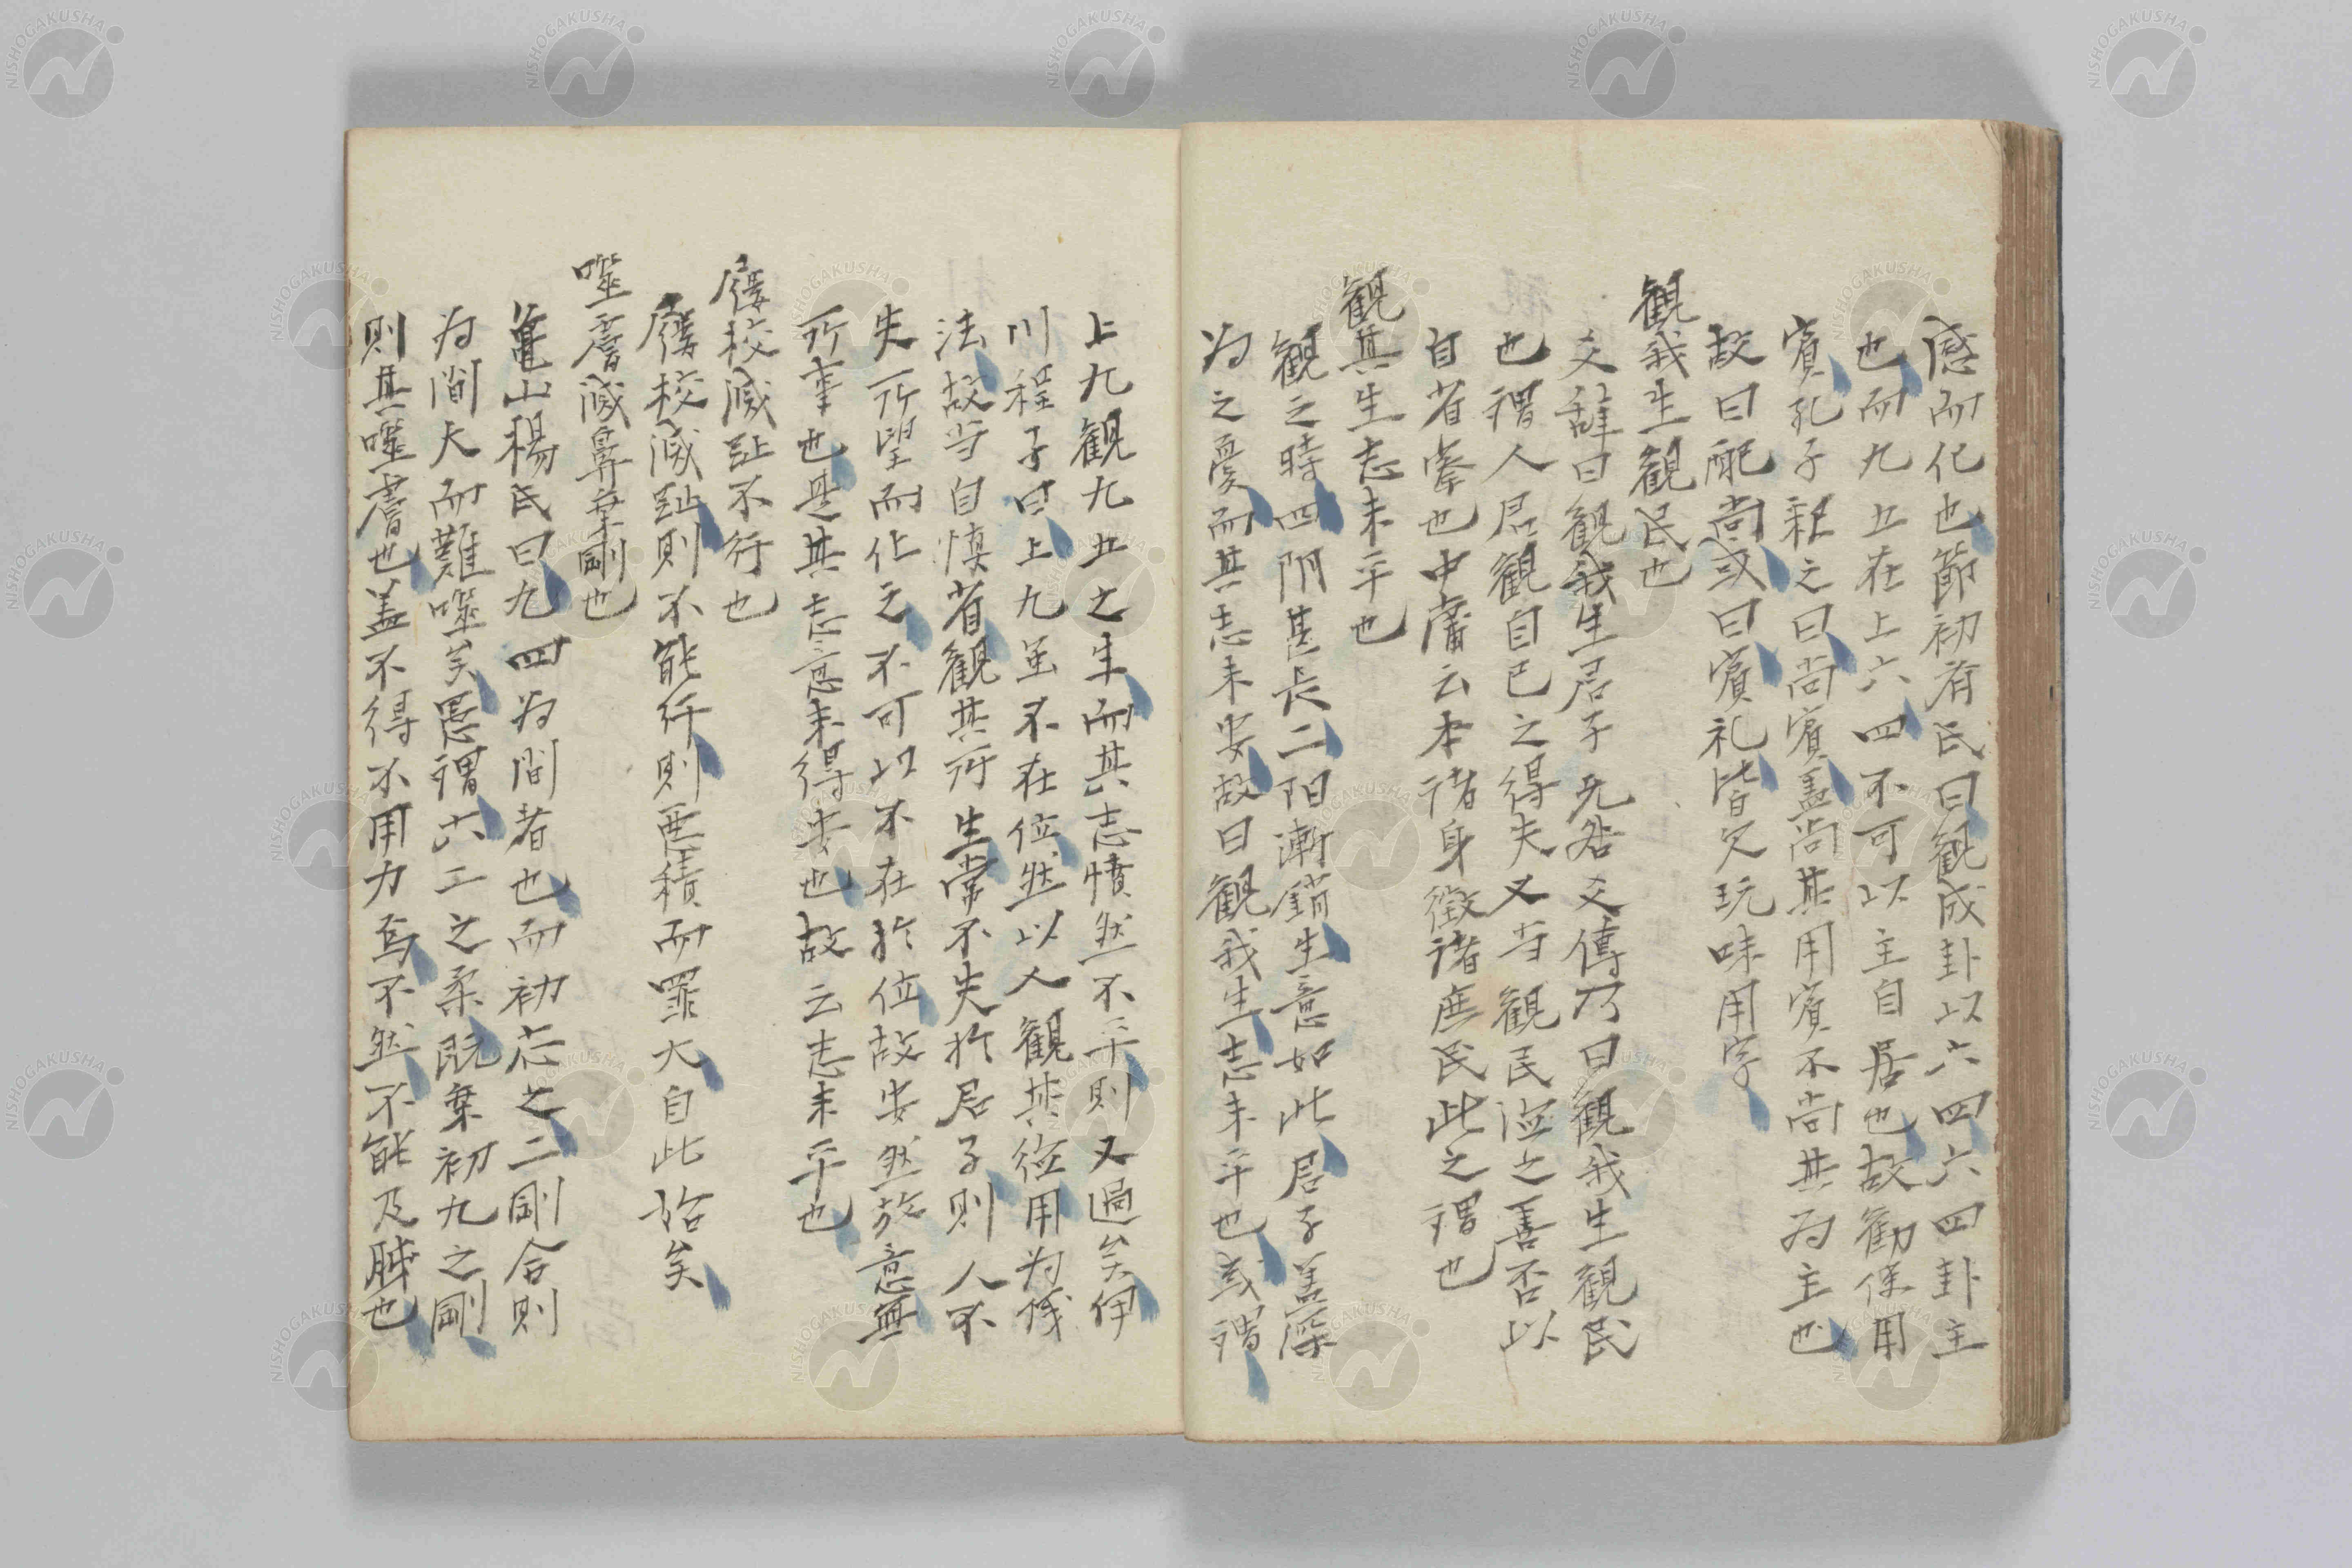 感而化也節初齊氏曰觀成卦以六四六四卦主
也而九五在上六四不可以主自居也故勸使用
賓孔子釈之曰尚賓蓋尚其用賓不尚其為主也
故曰配尚或曰賓礼皆欠玩味用字
觀我生觀民也
爻辞曰觀我生君子无咎爻傳乃曰觀我生觀民
也謂人君觀自己之得失又当觀民俗之善否以
自省察也中庸云本诸身徵诸庶民此之謂也
觀其生志未平也
觀之時四阴甚長二阳漸銷生意如此君子盖深
为之憂而其志未安故曰觀我生志未平也或謂
上九觀九五之生而其志憤然不平則又過矣伊
川程子曰上九虽不在位然以人觀其德用为儀
法故当自慎省觀其所生常不失於君子則人不
失所望而化之不可以不在於位故安然放意無
所事也是其志意未得安也故云志未平也
屨校滅趾不行也
屨校滅趾則不能行則悪積而罪大自此始矣
噬膚滅鼻乗剛也
亀山楊氏曰九四为間者也而初忘之二剛合則
为間大而難噬矣愚謂六二之柔既乗初九之剛
則其噬膚也盖不得不用力焉不然不能及腊也
NISHOGAKUSHA